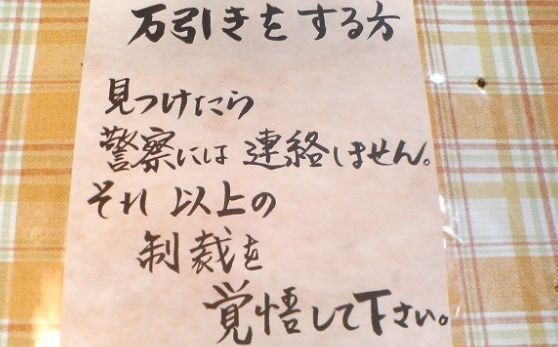 万引きをする方
見つけたら
警察には連絡しません。
それ以上の
制裁を
覚悟して下さい。